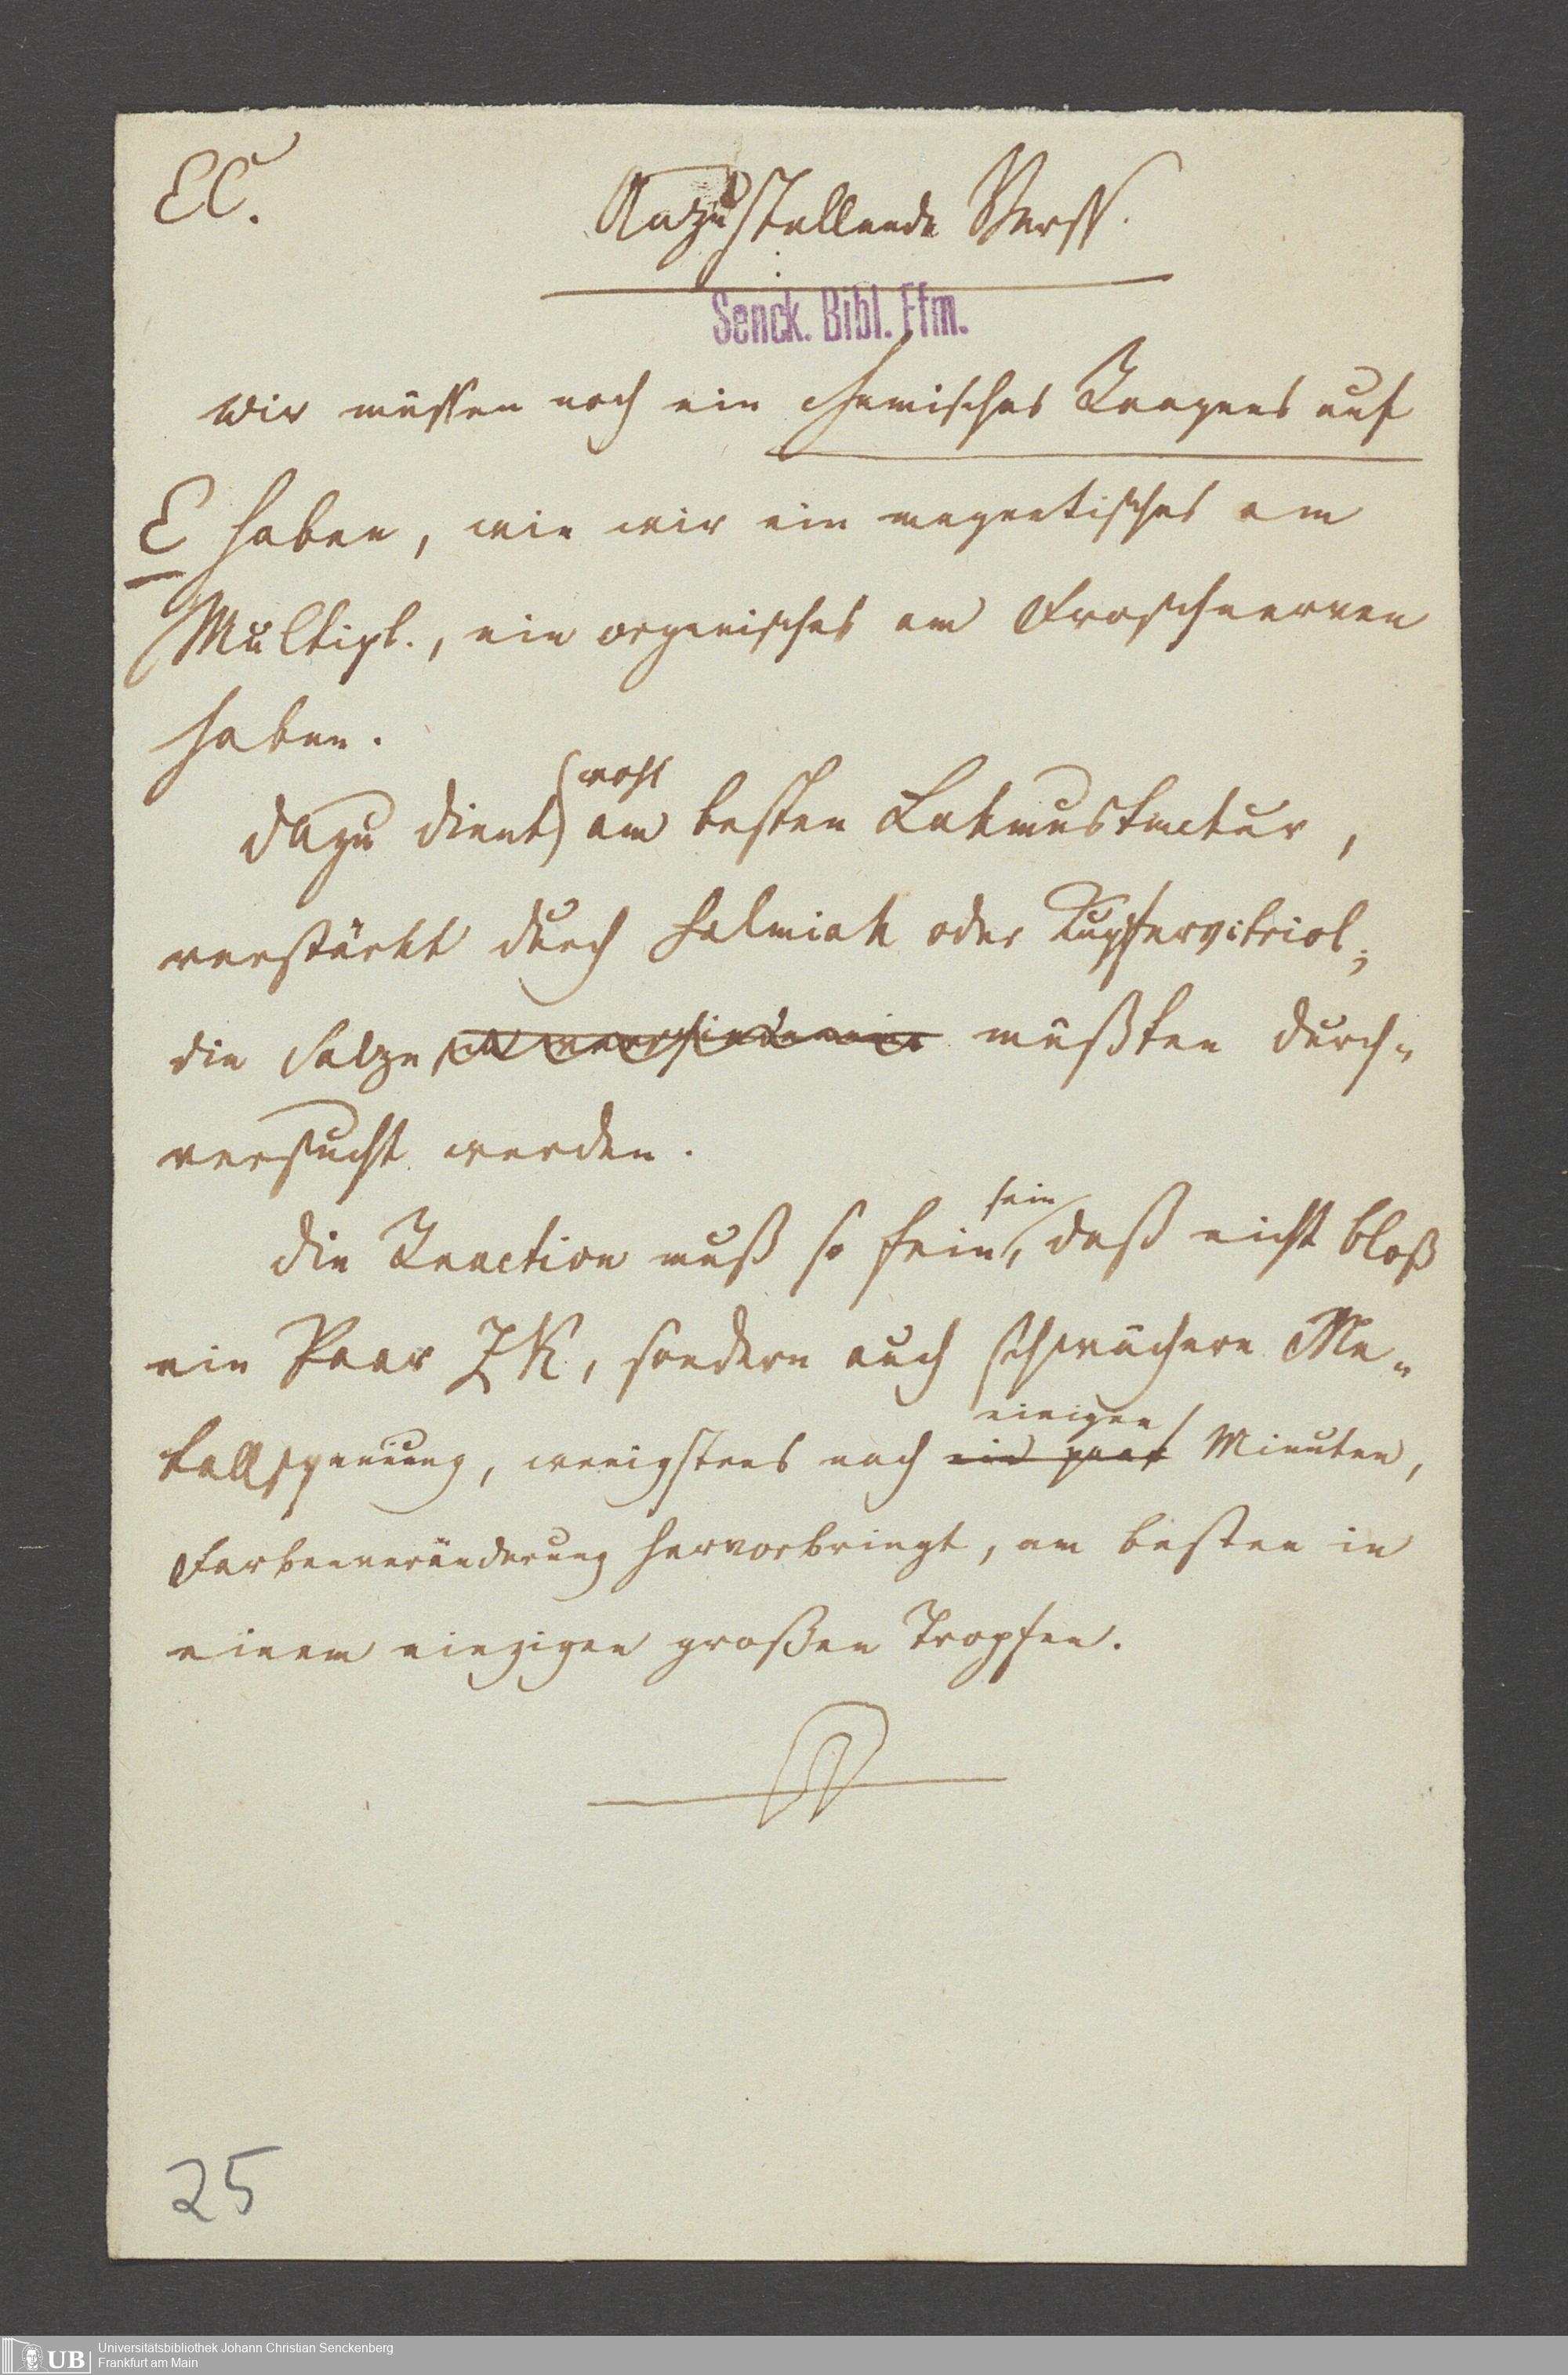 EC.
Anzustellende Verss.
Senck. Bibl. Ffm.
Wir müssen noch ein chemisches Reagens auf
E haben, wie wir ein magnetisches am
Multipl., ein organisches am Froschnerven
haben.
wohl
Dazu dient am besten Lakmustinctur,
verstärkt durch Salmiak oder Kupfervitriol;
die Salze müßten durch-
versucht werden.
sein
Die Reaction muß so fein, daß nicht bloß
ein Paar ZK, sondern auch schwächere Me-
einigen
tallspannung, wenigstens nach ein paar Minuten,
Farbenveränderung hervorbringt, am besten in
einem einzigen großen Tropfen.
25
UB
Universitätsbibliothek Johann Christian Senckenberg
Frankfurt am Main